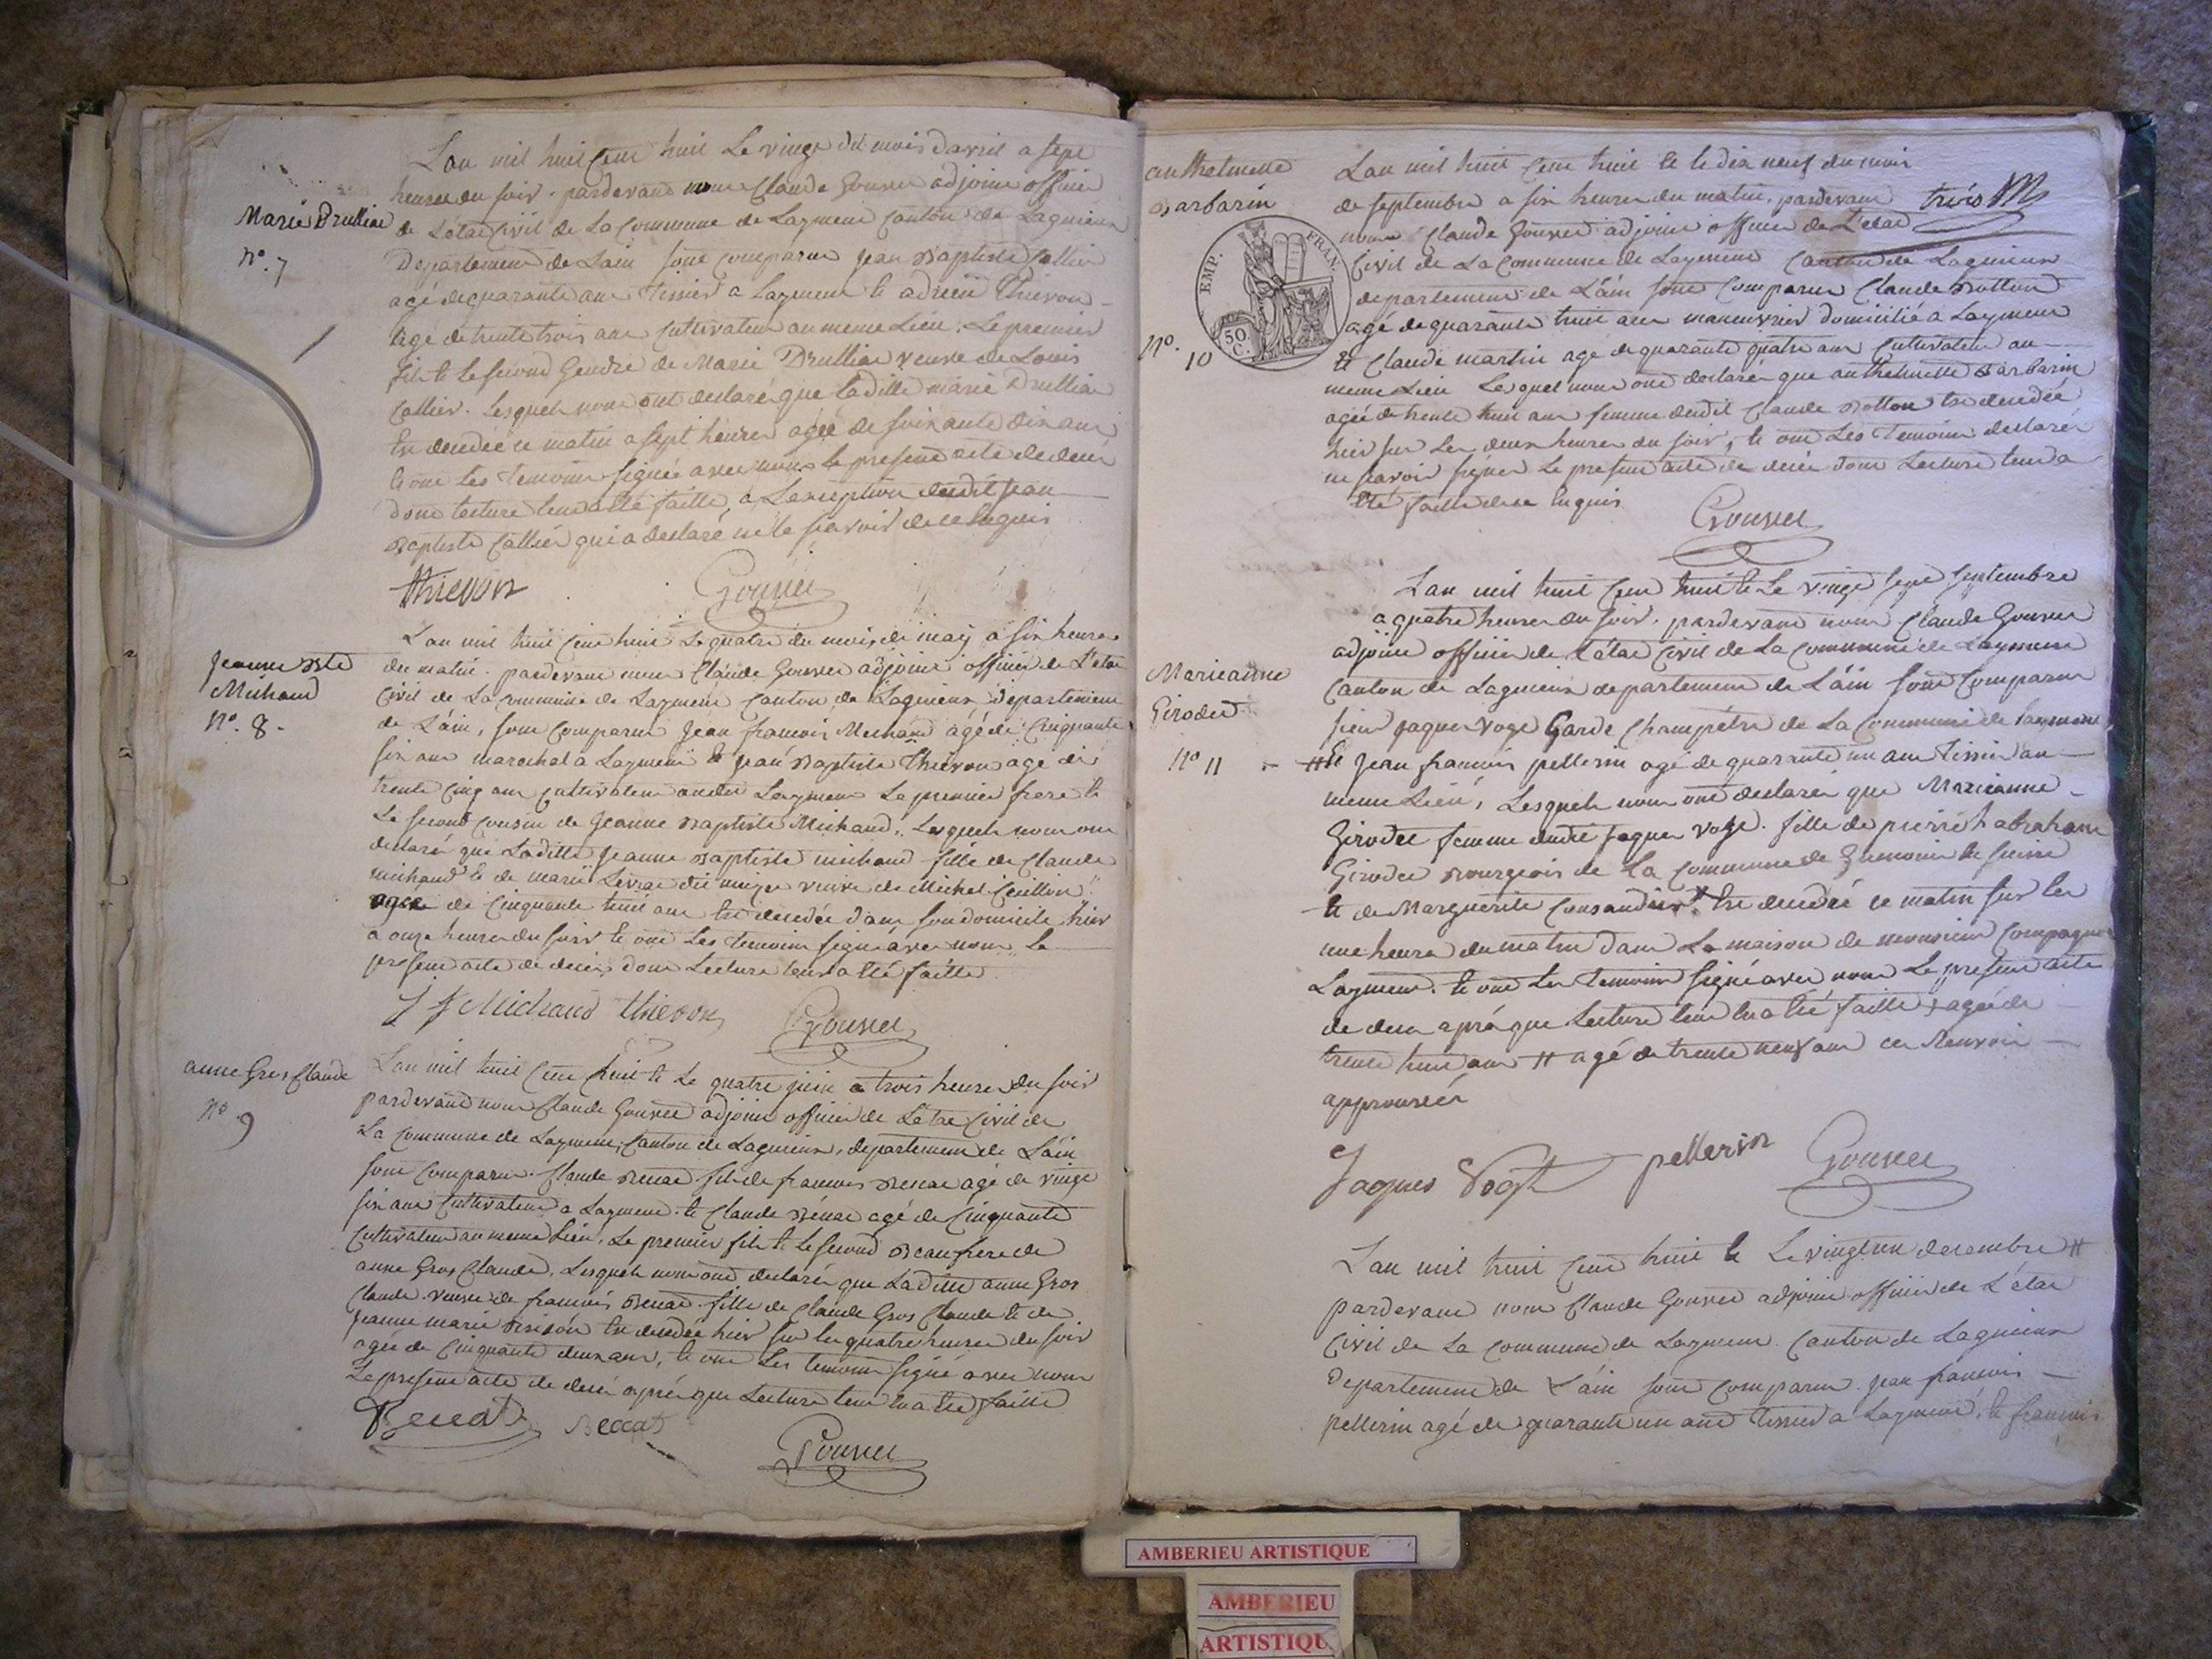 Lan mil huit Cent huit Le vingt du mois davril a sept
heures du soir. pardevant nous Claude Gouvet adjoint officier
Marie Drulliat
de L'état Civil de La Commune de Laymeint Canton de Lagnieux
N°. 7
Departement de Lain sont Comparu Jean Baptiste Callier
agé de quarante ans tissier a Laymeint et Thievon
agé de trente trois ans Cultivateur au meme Lieu. Le premier
fils et le second Gendre de Marie Drulliat veuve de Louis
Callier. Lesquels nous ont declaré que Ladille marie Drulliat
est decedée ce matin a sept heures agée de soixante dix ans
et ont Les temoins signée avec nous le present acte de decés
dont Lecture leur a été faitte, a L'exception dudit Jean
Baptiste Callier qui a declaré ne le scavoir de ce Enquis
thievon Gouvet
Lan mil huit Cent huit Le quatre du mois de may a six heures
Jeanne Bte
Michaud
N°. 8.
du matin. pardevant nous Claude Gouvet adjoint officier de L'etat
Civil de La Commune de Laymeint Canton de Lagnieux Departement
de L'ain, sont Comparu Jean francois Michaud agé de Cinquante
six ans marechal a Laymeint et Jean Baptiste Thievon agé de
trente Cinq ans Cultivateur Laymeint Le premier frere et
Le second Cousin de Jeanne Baptiste Michaud, Lesquels nous ont
declaré que Laditte Jeanne Baptiste michaud fille de Claude
michaud et de marie veuve de Michel
agée de Cinquante huit ans est decedée dans son domicile hier
a onze heures du soir et ont Les temoins signé avec nous Le
present acte de decés dont Lecture leur a été faitte
J f Michaud thievon Gouvet
anne Gros Claude
N° 9
Lan mil huit Cent huit et Le quatre juin a trois heures du soir
pardevant nous Claude Gouvet adjoint officier de L'état Civil de
La Commune de Laymeint, Canton de Lagnieux, departement de L'ain
sont Comparu. Claude Beccat fils de francois Beccat agé de vingt
six ans Cultivateur a Laymeint. et Claude Beccat agé de Cinquante
Cultivateur au meme Lieu, Le premier fils et le second Beau frere de
anne Gros Claude, Lesquels nous ont declaré que Ladille anne Gros
Claude veuve de francois Beccat fille de Claude Gros Claude et de
Jeanne marie est decedée hier sur les quatre heures du soir
agée de Cinquante deux ans, et ont Les temoins signé avec nous
Le present acte de decés aprés que Lecture leur en a été faitte
Beccat Beccat
Gouvet
anthelmette
Barbarin
N°. 10
EMP. FRAN.
50
C.
Lan mil huit Cent huit et le dix neuf du mois
de septembre a six heures du matin, pardevant
trois
nous Claude Gouvet adjoint officier de L'etat
Civil de La Commune de Laymeint Canton de Lagnieux
departement de L'ain sont Comparu Claude Botton
agé de quarante huit ans maneuvrier domicilié a Laymeint
et Claude martin agé de quarante quatre ans Cultivateur au
meme Lieu Lesquels nous ont declaré que anthelmette Barbarin
agée de trente huit ans femme dudit Claude Botton est decedée
hier sur Les deux heures du soir, et ont Les temoins declaré
ne scavoir signer Le present acte de decés dont Lecture leur a
été faitte de ce Enquis
Gouvet
Lan mil huit Cent huit et Le vingt sept septembre
a quatre heures du soir. pardevant nous Claude Gouvet
adjoint officier de L'état Civil de La Commune de Laymeint
Marieanne
Girodet
N° 11
Canton de Lagnieux departement de L'ain sont Comparu
sieur Jaques Vogt Garde Champêtre de La Commune de Laymeint
# Et Jean francois pellerin agé de quarante un ans tissier au
meme Lieu, Lesquels nous ont declaré que Marieanne
Girodet femme dudit Jaques Vogt. fille de pierre abraham
Girodet Bourgeois de La Commune de en suisse
et de Marguerite est decedée ce matin sur les
une heure du matin dans La maison de monsieur Compagnon
Laymeint. et ont Les temoins signé avec nous Le present acte
de deces aprés que Lecture leur en a été faitte x agée de
trente huit ans # agé de trente neuf ans ces Renvois
approuvés
Jaques Vogt pellerin Gouvet
Lan mil huit Cent huit et Le vingt un decembre #
pardevant nous Claude Gouvet adjoint officier de L'état
Civil de La Commune de Laymeint Canton de Lagnieux
Departement de L'ain sont Comparu Jean francois
pellerin agé de quarante un ans tissier a Laymeint, et francois
AMBERIEU ARTISTIQUE
AMBERIEU
ARTISTIQU